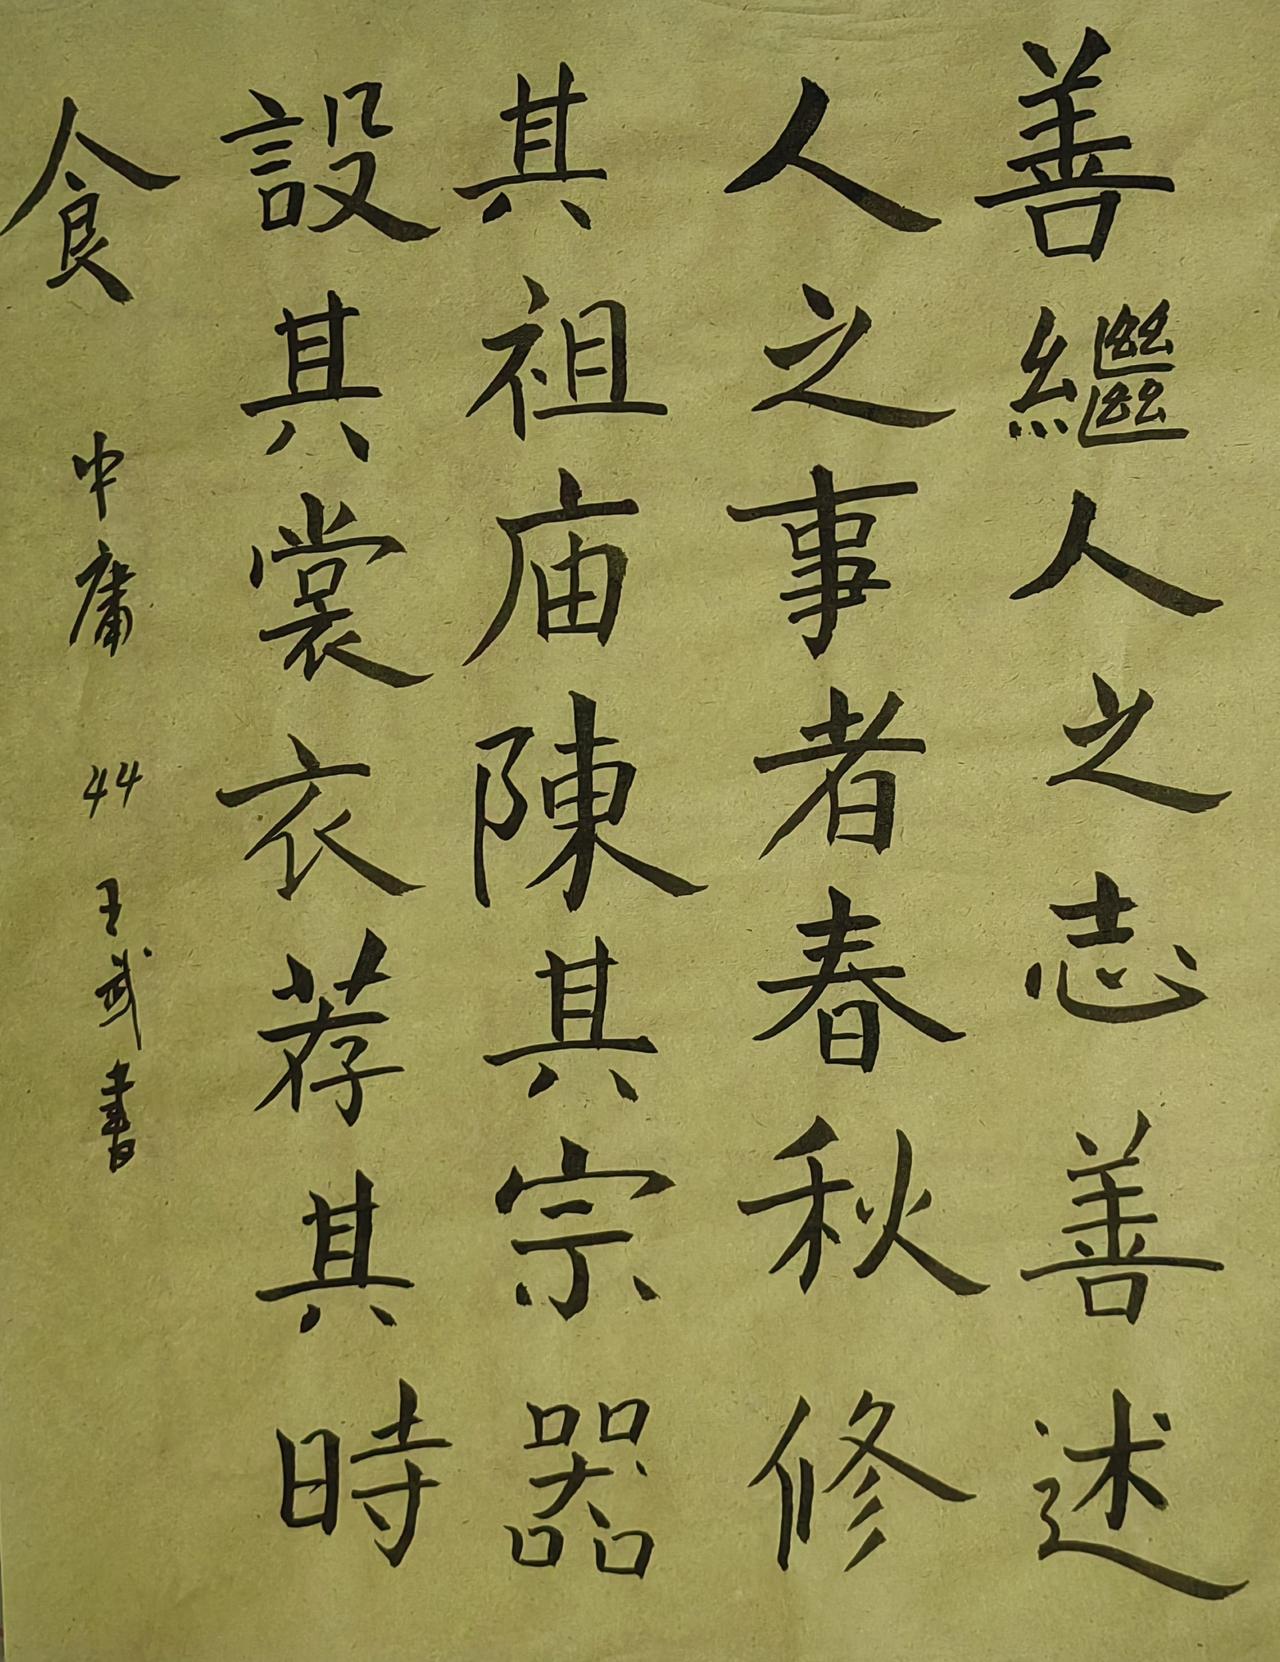 善繼人之志善述
人之事者春秋修
其祖庙陳其宗器
設其裳衣荐其時
食
中庸 44 王武書